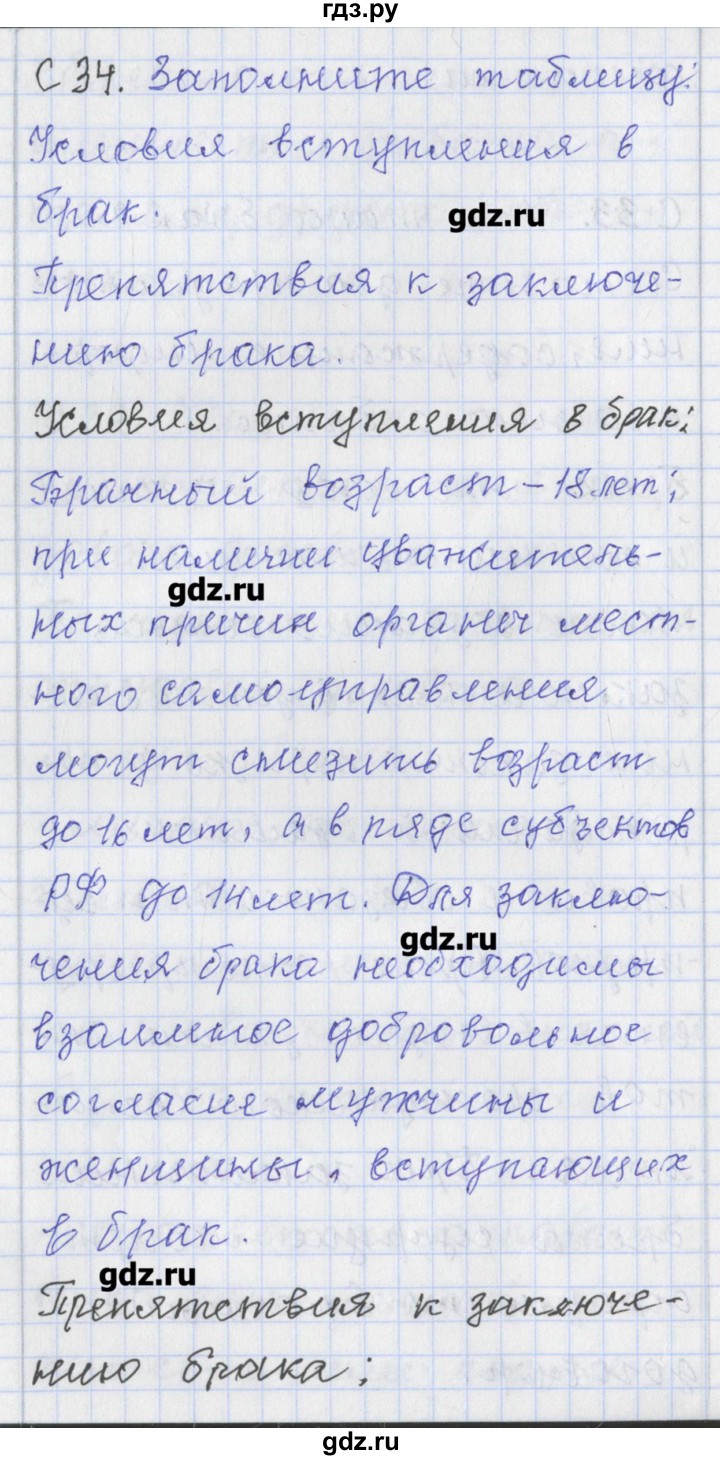 гдз.ру
С 34. Заполните таблицу:
Условия вступления в
брак.
gdz.ru
Препятствия к заключе-
нию брака.
Условия вступления в брак:
Брачный возраст - 18 лет;
при наличии уважитель-
gdz.ru
ных причин органы мест-
ного самоуправления
могут снизить возраст
до 16 лет, а в ряде субъектов
РФ до 14 лет. Для заклю-
gdz.ru
чения брака необходимы
взаимное добровольное
согласие мужчины и
женщины, вступающих
в брак.
gdz.ru
Препятствия к заключе-
нию брака:
gdz.ru